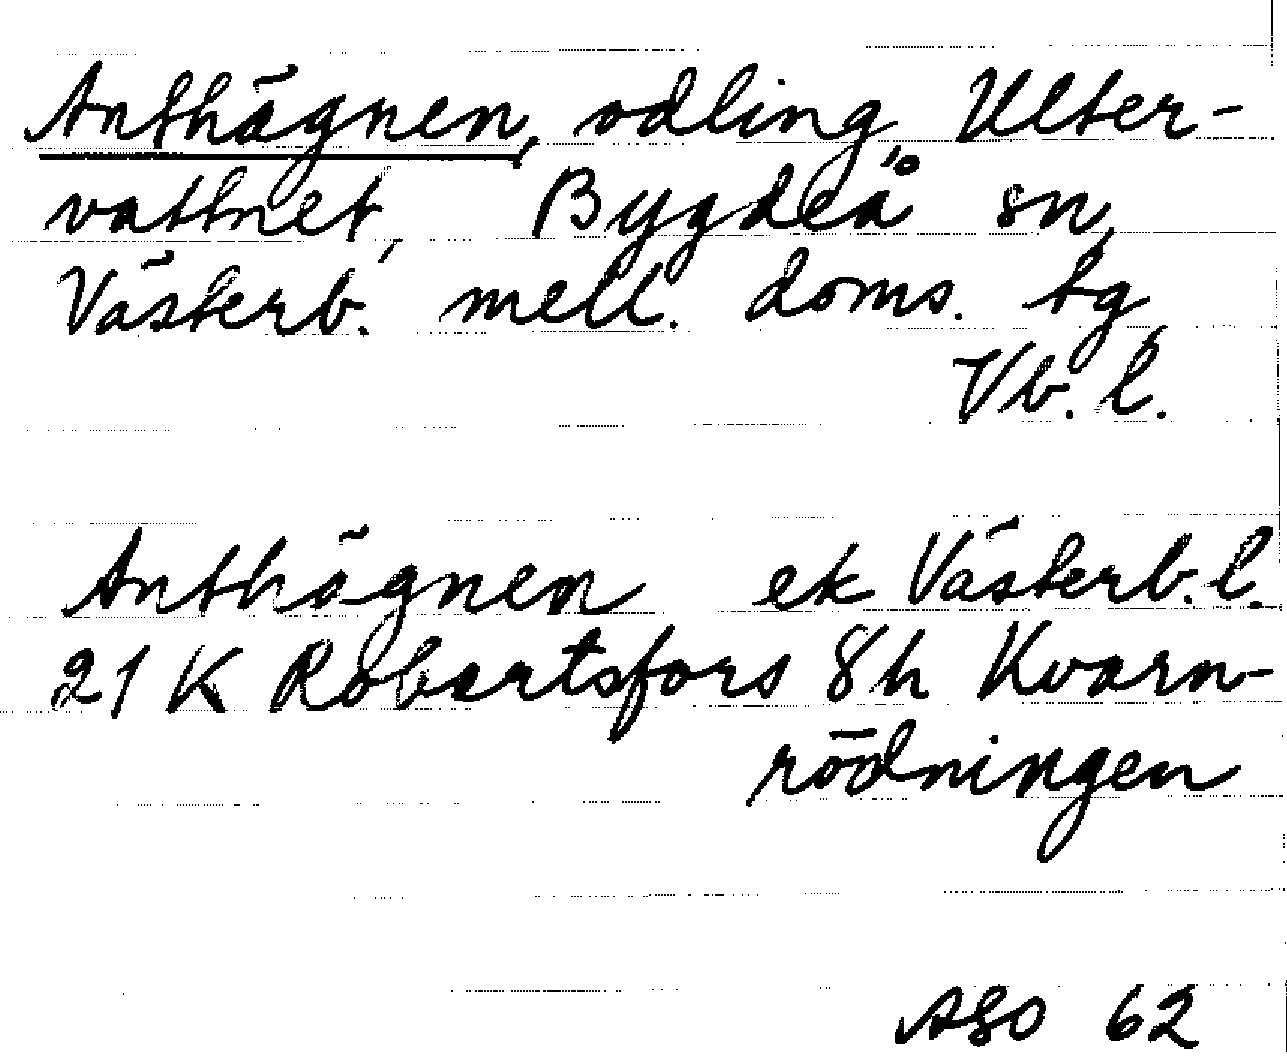 Anthägnen, odling, Ulter-
vattnet, Bygdeå sn,
Västerb. mell. doms. tg,
Vb. l.
Anthägnen ek Västerb. l.
21 K Robertsfors 8h Kvarn-
rödningen
ASO 62